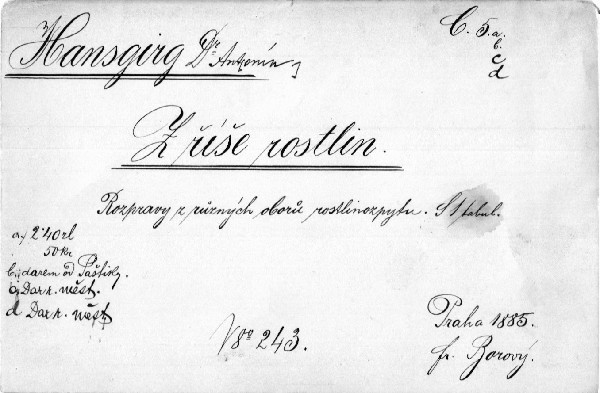 Hansgirg Dr Antonín, C. 5. a.
b.
c
d
Z říše rostlin.
Rozpravy z různých oborů rostlinozpytu. S 1 tabul.
a.) 2·40 zl
50 kr
b.) darem od Paštiky.
c) Dar k. měst.
d Dar k. měst
V 8ᵒ 243.
Praha 1885.
fr. Borový.